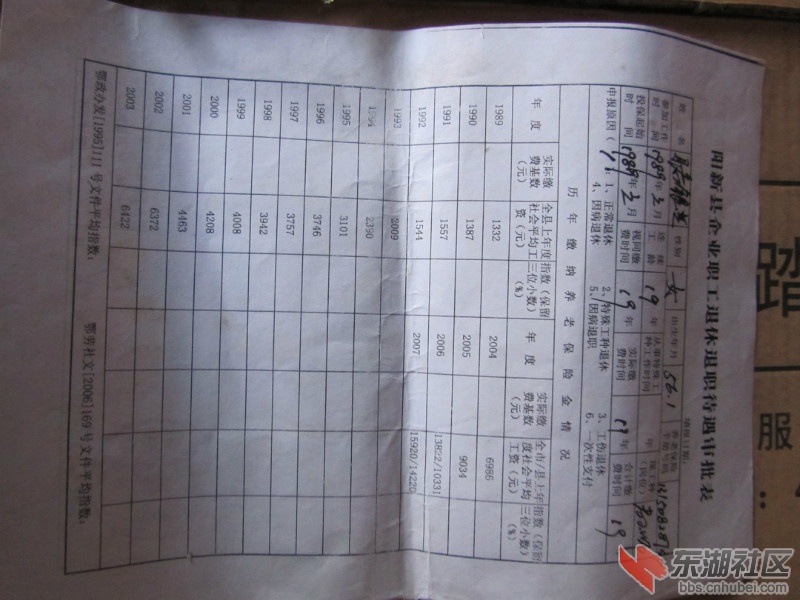 阳新县企业职工退休退职待遇审批表
填报日期:
姓 名 性别 女 出生年月 56.1 养老保险手册号码
参加工作时间 1989年2月 连续工龄 19年 从事特殊工种工作时间 年 原工种(岗位)
投保起始时间 1989年2月 视同缴费时间 19年 实际缴费时间 19年 合计缴费时间 19
申报原因( 1 ) 1、正常退休 2、特殊工种退休 3、工伤退休
4、因病退休 5、因病退职 6、一次性支付
历年缴纳养老保险金情况
年 度 实际缴费基数(元) 全县上年度社会平均工资(元) 指数(保留三位小数)(%) 年 度 实际缴费基数(元) 全市/县上年度社会平均工资(元) 指数(保留三位小数)(%)
1989 1332 2004 6986
1990 1387 2005 9034
1991 1557 2006 13822/10331
1992 1544 2007 15920/14220
1993 2009
1994 2390
1995 3101
1996 3746
1997 3757
1998 3942
1999 4008
2000 4208
2001 4463
2002 6372
2003 6422
鄂政办发[1995]111号文件平均指数: 鄂劳社文[2006]169号文件平均指数:
踏
服
东湖社区
bbs.cnhubei.com